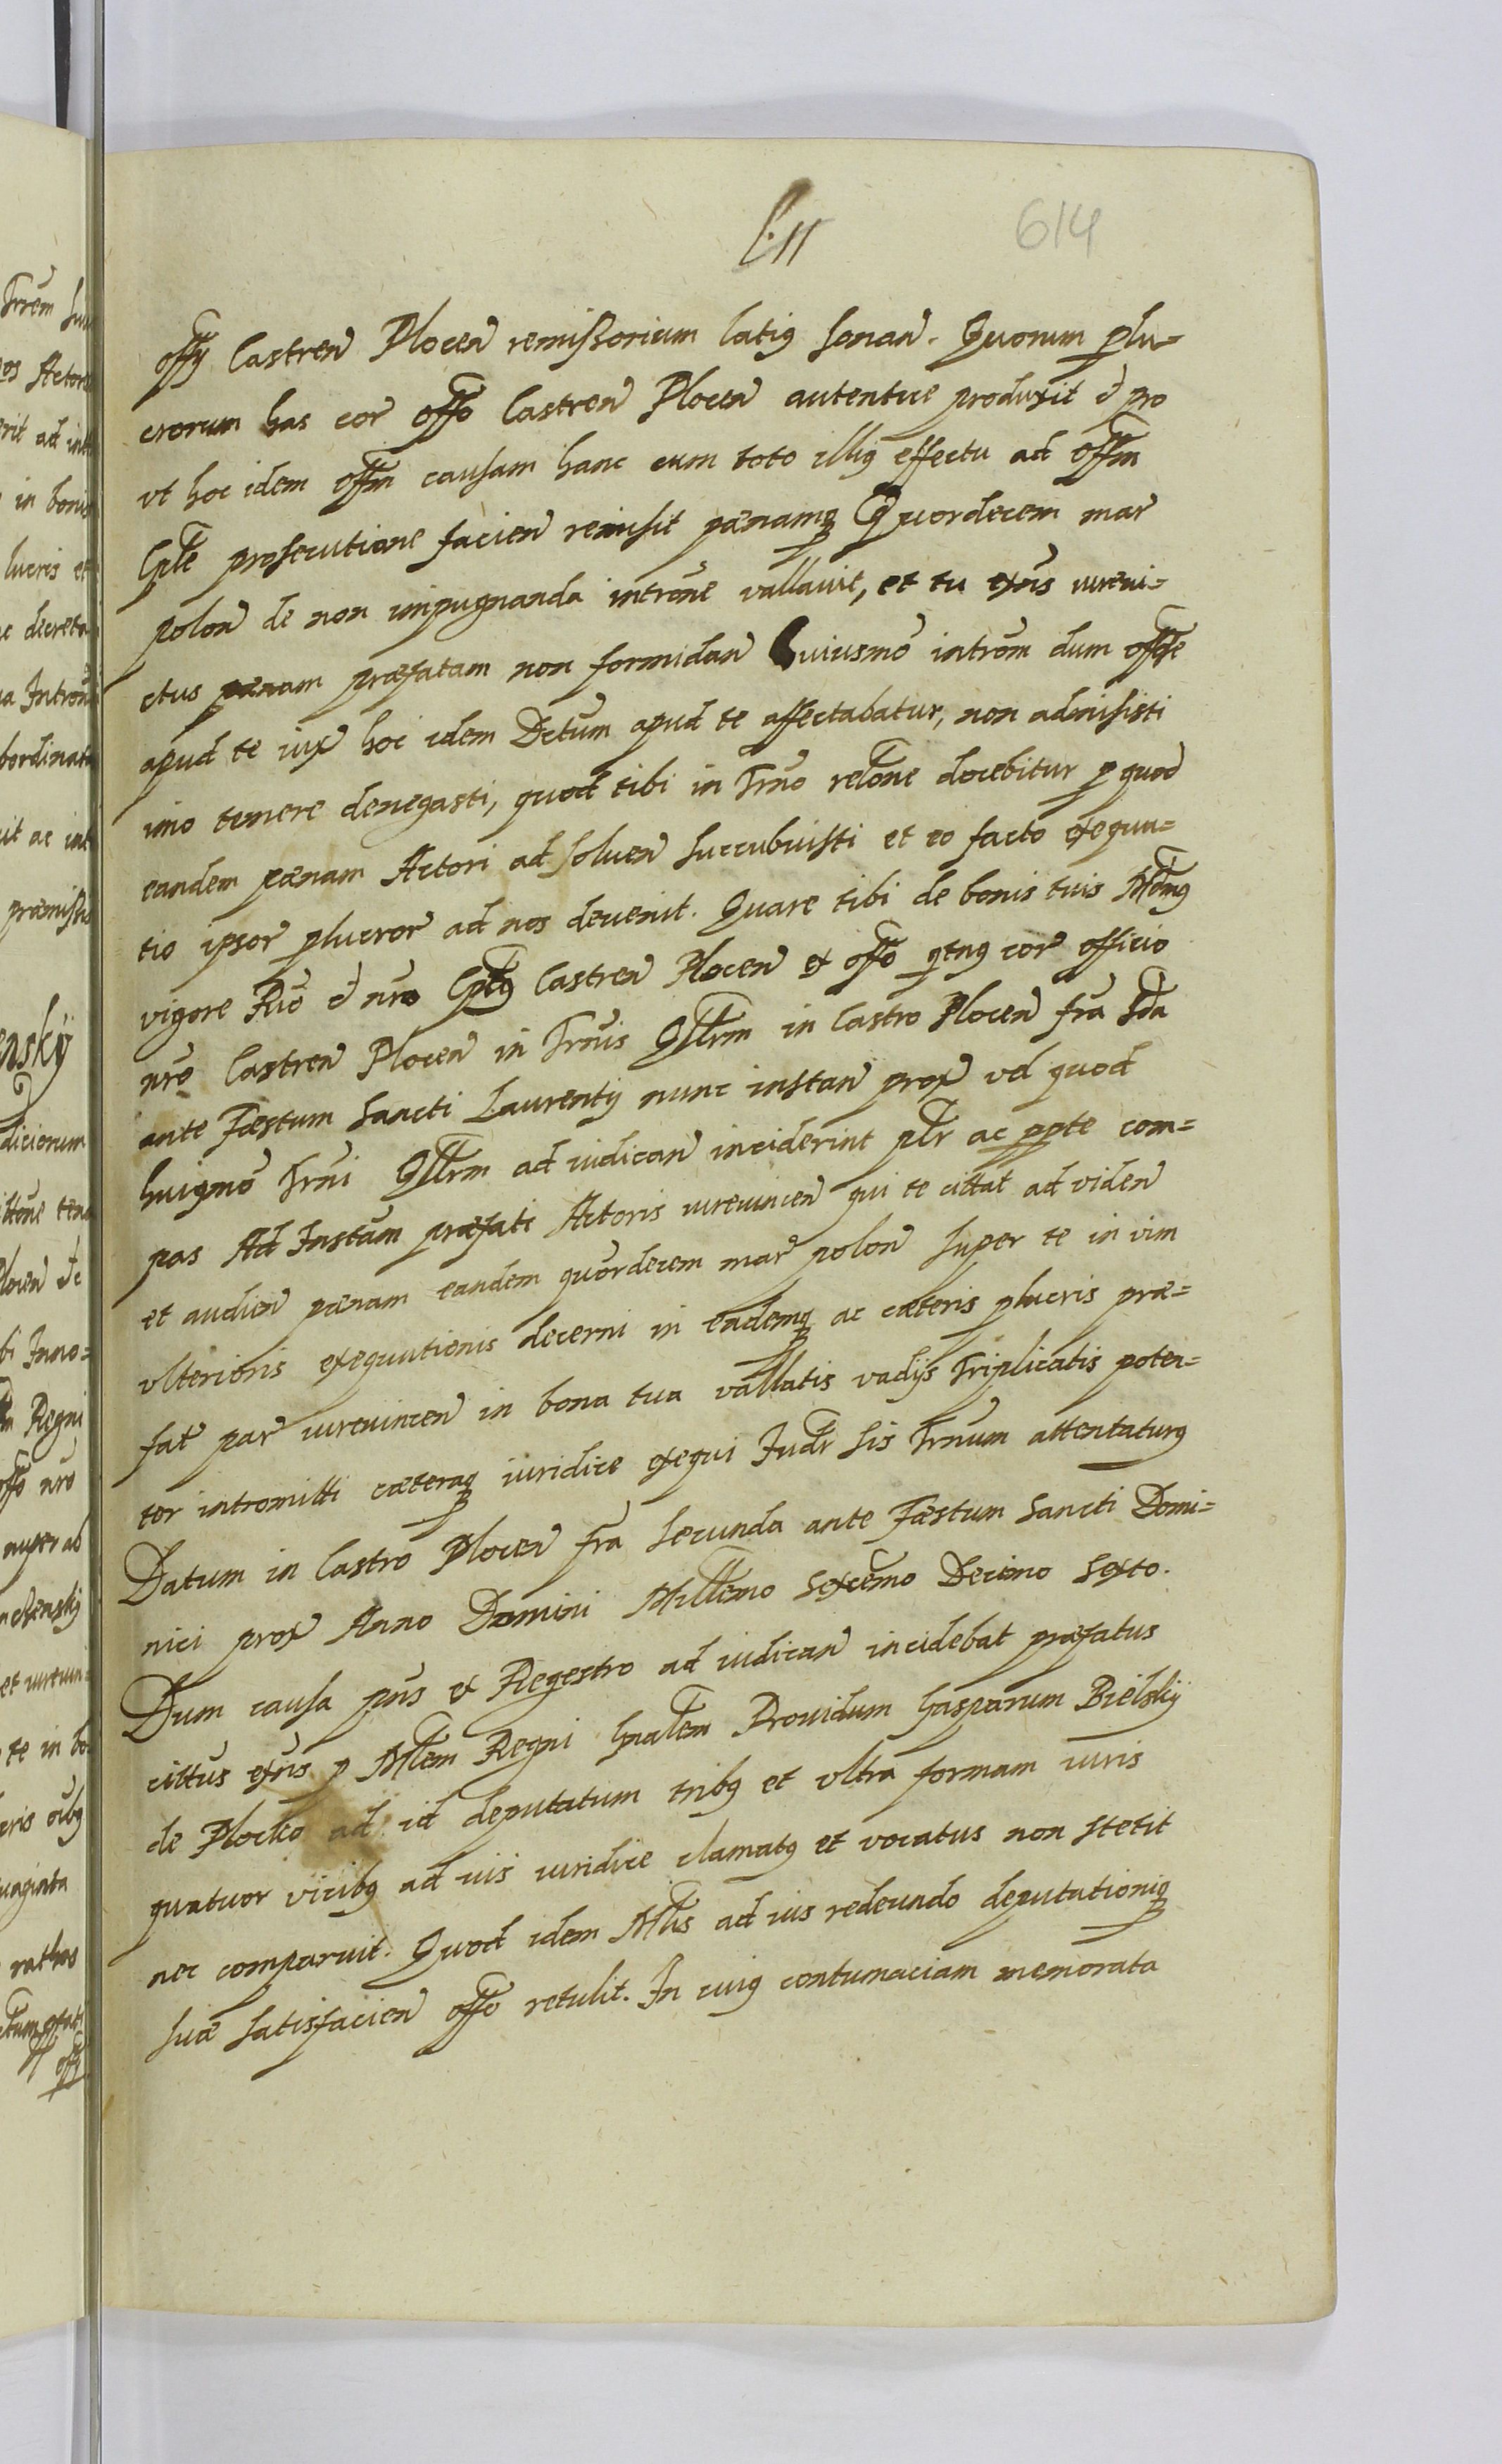 614
offy Castren Plocen remissorium latius sonan. Quorum plu=
crorum has cor offo Castren Plocen autentice produxit et pro
vt hoc idem offm causam hanc cum toto illius effectu ad offm
Cple prosecutione facien remisit pænamq Quordecem mar
polon de non impugnanda introne vallavit, et tu exns iurevi=
ctus pænam præfatam non formidan huiusmo introm dum offose
apud te iux hoc idem Dctum apud te affectabatur, non admisisti
imo temere denegasti, quod tibi in Trno relone docebitur p quod
eandem pænam Actori ad soluen succubuisti et eo facto exequu=
tio ipsor plucror ad nos devenit. Quare tibi de bonis tuis Mdmus
vigore Rio et nro Cptus Castren Plocen ex offo qtnus cor officio
nro Castren Plocen in Trnis Qllrm in Castro Plocen fra Sda
ante Fæstum Sancti Laurentij nunc instan prox vel quod
huiusmo Trni Qllrm ad iudican inciderint pltr ac ppte com=
pas Ad Instam præfati Actoris iurevincen qui te cittat ad viden
et audien pænam eandem quordecem mar polon super te in vim
vlterioris exequutionis decerni in eademq ac cæteris plucris præ=
fat par iurevincen in bona tua vallatis vadijs Triplicatis poten=
ter intromitti cæteraq iuridice exequi Judr sis Trnum attentaturus
Datum in Castro Plocen fra Secunda ante Fæstum Sancti Domi=
nici prox Anno Domini Millemo Sexcemo Decimo Sexto.
Dum causa pns ex Regestro ad iudican incidebat præfatus
cittus exns p Mlem Regni Gnalem Providum Gasparum Bielskÿ
de Plocko ad id deputatum tribus et vltra formam iuris
quatuor vicibus ad ius iuridice clamatus et vocatus non stetit
nec comparuit. Quod idem Mlis ad ius redeundo deputationiq
suæ satisfacien offo retulit. In cuius contumaciam memorata